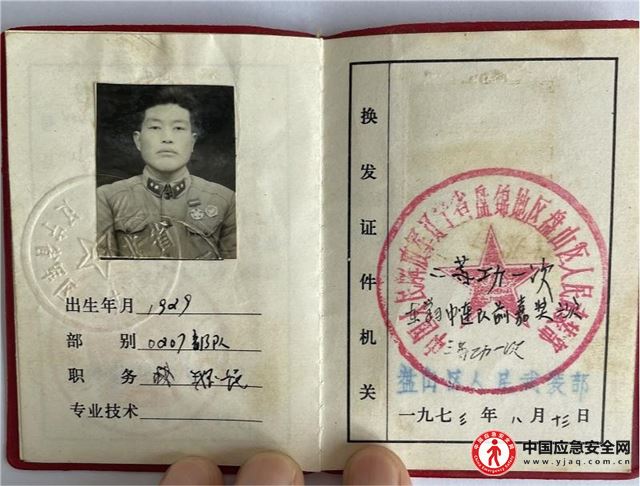 出生年月 1929
部别 0207部队
职务 班长
专业技术
换发证件机关
中国人民解放军辽宁省盘锦地区盘山区人民武装部
二等功一次
在部中连队前嘉奖六次
三等功一次
盘山区人民武装部
一九七三年八月十三日
中国应急安全网
www.yjaq.com.cn